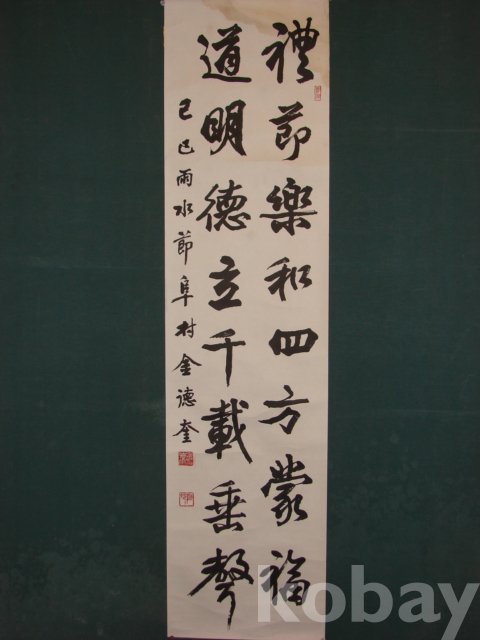 禮節樂和四方蒙福
道明德立千載垂聲
己巳雨水節阜村金德奎
kobay